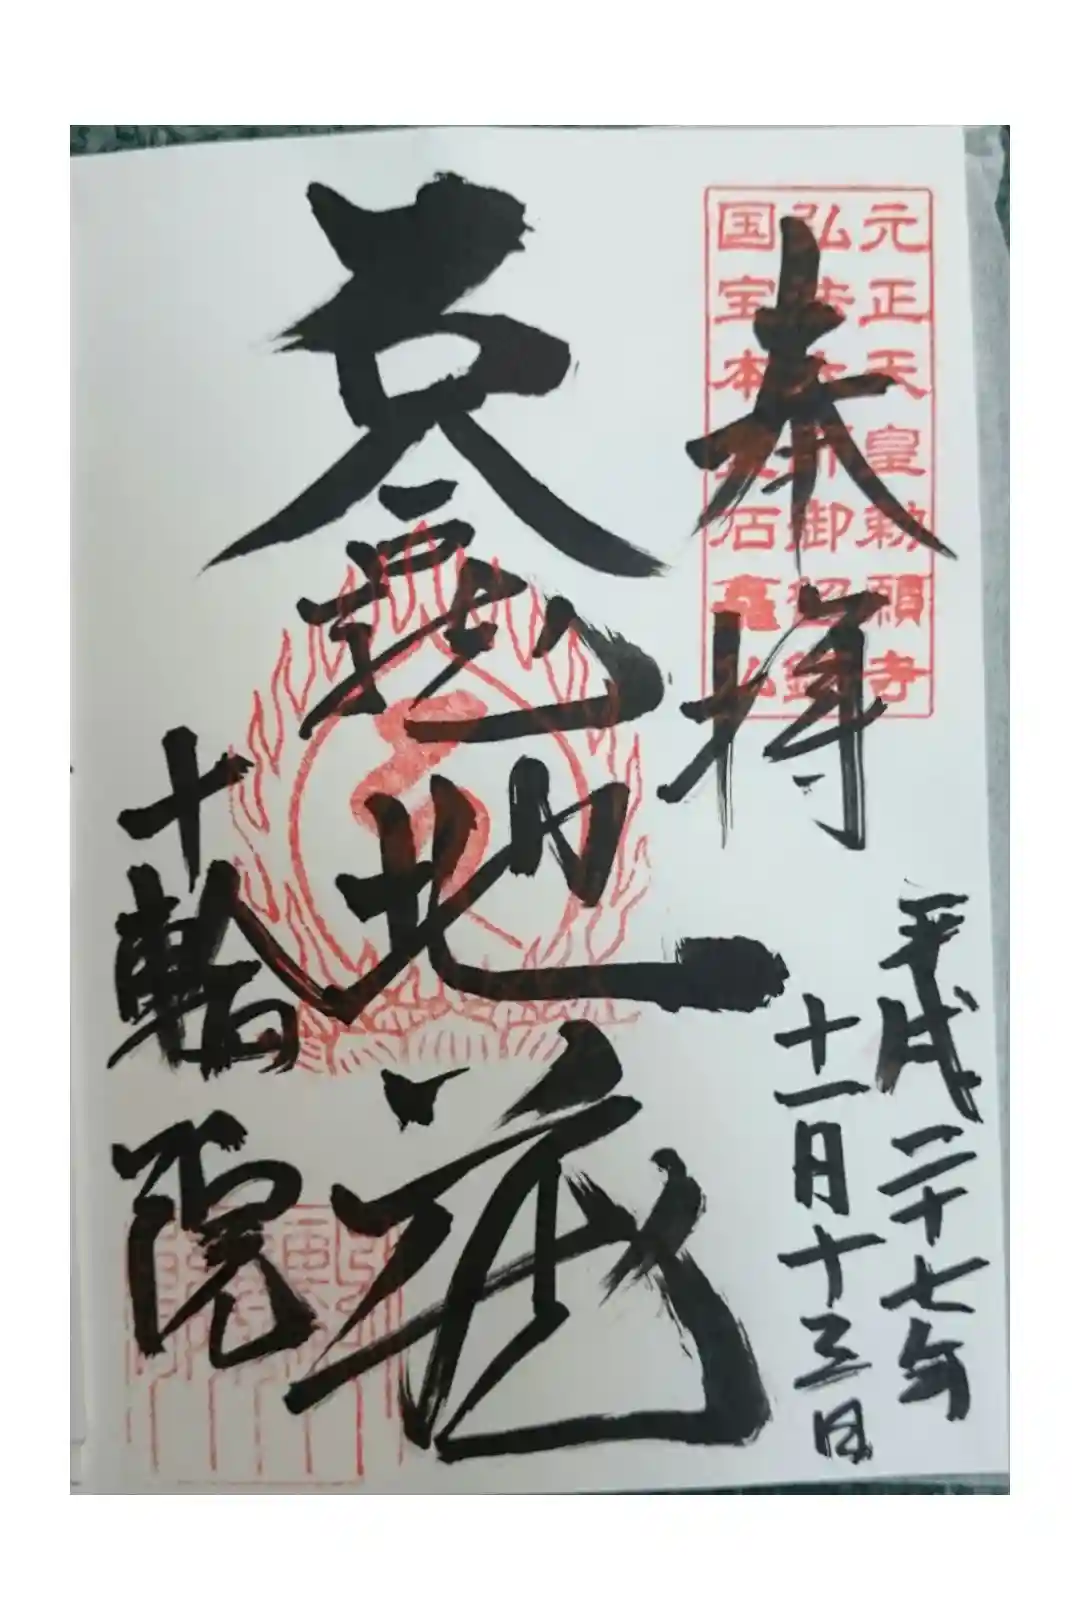 元正天皇勅願寺
弘法大師御留錫
国宝本堂石龕仏
奉拝
平成二十七年
十一月十三日
地蔵
十輪院